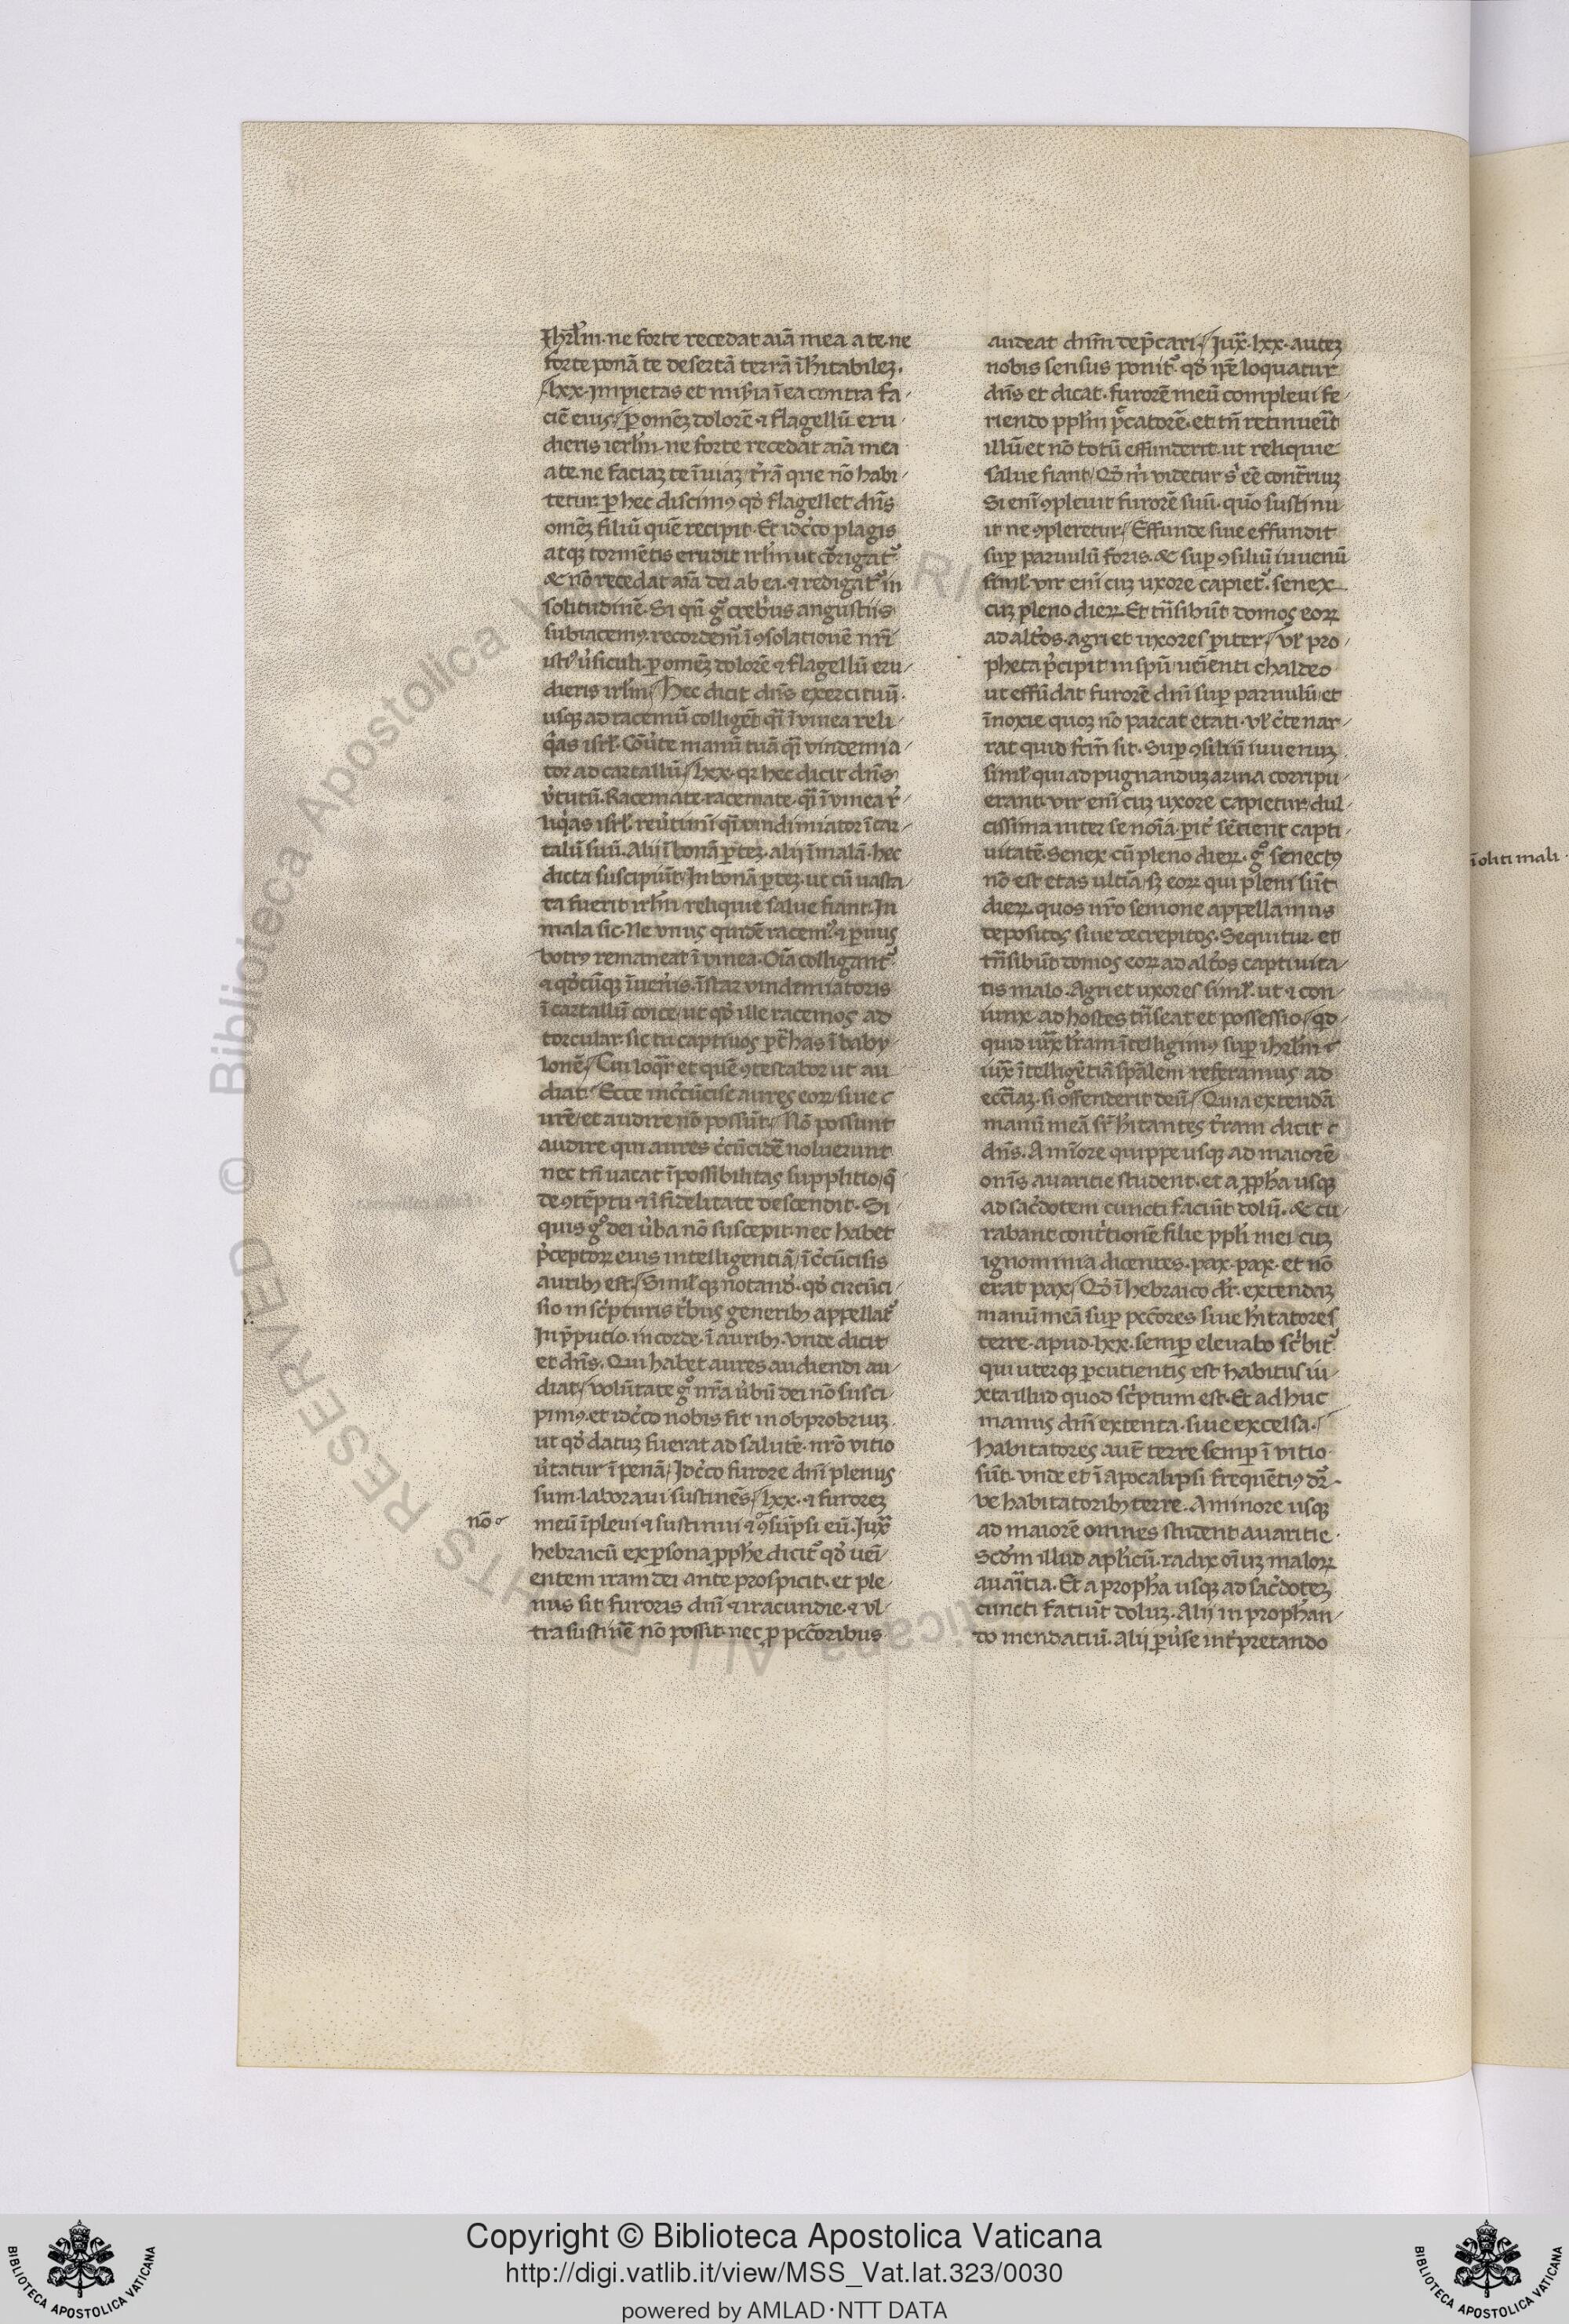 Ihrl̃m · ne forte recedat aĩa mea a te · ne
forte ponã te desertã terrã ĩhĩtabilez ·
lxx · Impietas et mis̃ia ĩ ea contra fa/
ciẽ eius / ꝑ omẽz dolorẽ ⁊ flagellũ eru
dieris ierl̃m · ne forte recedat aĩa mea
a te · ne faciaz te ĩuiaz t̃rã que nõ habi/
tetur · ꝑ hec discimꝰ qđ flagellet dñs
omẽz filiũ quẽ recipit · Et idc̃co plagis
atqz tormẽtis erudit irl̃m ut corrigat᷑
& nõ recedat aĩa dei ab ea · ⁊ redigat᷑ in
solitudinẽ · Si qñ gͦ crebr̃us angustiis
subiacemꝰ · recordem᷑ ĩ ꝯsolationẽ nr̃i
istiꝰ ũsiculi · ꝑ omẽz dolorẽ ⁊ flagellũ eru/
dieris irl̃m / Hec dicit dñs exercituũ ·
usqz ad racemũ colligẽt qĩ ĩ vinea reli/
q̃as isrl̃ · Cõũte manũ tuã qĩ vindemia/
tor ad cartallũ / lxx · qr hec dicit dñs
ũtutũ · Racemate · racemate · qĩ ĩ vinea r̃/
liq̃as isrl̃ · reũtimĩ qĩ vindimiator ĩ car/
talũ suũ · Alij ĩ bonã ꝑtez · alij ĩ malã · hec
dicta suscipiũt · In bonã ꝑtez · ut cũ uasta/
ta fuerit irl̃m reliquie salue fiant · In
mala sic · Ne vnus quidẽ racemꝰ ⁊ ꝑuus
botrꝰ remaneat ĩ vinea · Oĩa colligant᷑
⁊ qđcũqz ĩuen̄is · ĩstar vindemiatoris
ĩ cartallũ coice / ut qđ ille racemos ad
torcular · sic tu captiuos ꝑt̃has ĩ baby/
lonẽ / Cui loqr̃ et quẽ ꝯtestabor ut au
diat · Ecce ĩnc̃cũcise aures eorꝝ / siue c
urẽ / et audire nõ possũt / Nõ possunt
audire qui aures c̃cũcidẽ noluerunt
nec tñ uacat ĩpossibilitas supplitio / q̃
de ꝯtẽptu ⁊ ĩfidelitate descendit · Si
quis gͦ dei ũba nõ suscepit · nec habet
p̃ceptorꝝ eius intelligentiã / ĩc̃cũcisis
auribꝫ est / Simil̃qz notanđ · qđ circũci/
sio in sc̃pturis t̃bus generibꝫ appellat᷑
In p̃putio · in corde · ĩ auribꝫ · Vnde dicit
et dñs · Qui habet aures audiendi au/
diat / volũtate gͦ nr̃a ũbũ dei nõ susci/
pimꝰ · et idc̃co nobis fit in obprobriuz
ut qđ datuz fuerat ad salutẽ · nr̃o vitio
ũtatur ĩ penã / Idc̃co furore dñi plenus
sum · laboraui sustinẽs / lxx · ⁊ furorez
nõ
meũ ĩpleui ⁊ sustinui ⁊ ꝯsũpsi eũ · Jux̃
hebraicũ ex ꝑsona ꝓphẽ dicit᷑ qđ ueĩ/
entem iram dei ante prospicit · et ple/
nus sit furoris dñi ⁊ iracundie · ⁊ vl/
tra sustinẽ nõ possit · nec ꝓ pcc̃oribus
audeat dñm dep̃cari / Jux̃ · lxx · autez
nobis sensus ponit᷑ · qđ ip̃e loquatur
dñs et dicat · furorẽ meũ compleui fe/
riendo ppl̃m p̃catorẽ · et tñ retinueĩt
illũ / et nõ totũ effunderit · ut reliquie
salue fiant / Qđ m̃ videtur s̃ eẽ contr̃iuz
Si enĩ ꝯpleuit furorẽ suũ · quõ sustinu
it ne ꝯpleretur / Effunde siue effundit
suꝑ paruulũ foris · & suꝑ ꝯsiliũ iuuenũ
simil̃ · vir enĩ cuz uxore capiet᷑ · senex
cuz pleno dierꝝ · Et tñsibũt domos eorꝝ
ad alt̃os · agri et uxores ꝑiter / vl̃ pro/
pheta p̃cipit in spũ / ueĩenti chaldeo
ut effũdat furorẽ dñi suꝑ paruulũ / et
ĩnoxie quoz nõ parcat etati · vl̃ c̃te nar/
rat quid fc̃m sit · Suꝑ ꝯsiliũ iuuenuz
simil̃ qui ad pugnanduz arma corripu/
erant · vir enĩ cuz uxore capietur / dul/
cissima inter se noĩa · ꝑit̃ sẽcient capti/
uitatẽ · Senex cũ pleno dierꝝ · gͦ senectꝰ
nõ est etas ultĩa · sꝫ eorꝝ qui pleni sũt
dierꝝ · quos nr̃o sermone appellamus
depositos siue decrepitos · Sequitur · et
tñsibũt domos eorꝝ ad alt̃os captiuita/
tis malo · Agri et uxores simil̃ · ut ⁊ con/
iunx ad hostes tñseat et possessio / qđ/
quid iux̃ t̃ram ĩtelligimꝰ suꝑ ihrl̃m c
iux̃ ĩtelligẽtiã spãlem referamus ad
eccl̃iaz · si offenderit deũ / Quia extendã
manũ meã sr̃ hĩtantes t̃ram dicit c
dñs · A mĩore quippe usqz ad maiorẽ
om̃s auaritie student · et a ꝓpha usqz
ad sac̃dotem cuncti faciũt dolũ · & cu/
rabant cont̃tionẽ filie ppl̃i mei cuz
ignominia dicentes · pax · pax · et nõ
erat pax / Qđ ĩ hebraico dr̃ · extendaz
manũ meã suꝑ pcc̃ores siue hĩtatores
terre · apud · lxx · semꝑ eleuabo sc̃bit᷑
qui uterqz ꝑcutientis est habitus iu/
xta illud quod sc̃ptum est · Et ad huc
manus dñi extenta · siue excelsa · /
Habitatores aut̃ terre semꝑ ĩ vitio
sũt · vnde et ĩ apocalipsi frequẽtiꝰ dr̃ ·
ve habitatoribꝫ terre · A minore usqz
ad maiorẽ omnes student auaritie ·
Scđm illud apl̃icũ · radix oĩuz malorꝝ
auar̃itia · Et a propha usqz ad sac̃dotez
cuncti faciũt doluz · Alij in prophan/
do mendatiũ · Alij ꝑũse int̃pretando
ĩoliti mali ·
© Biblioteca Apostolica Vaticana ALL RIGHTS RESERVED
BIBLIOTECA APOSTOLICA VATICANA
Copyright © Biblioteca Apostolica Vaticana
http://digi.vatlib.it/view/MSS_Vat.lat.323/0030
powered by AMLAD·NTT DATA
BIBLIOTECA APOSTOLICA VATICANA